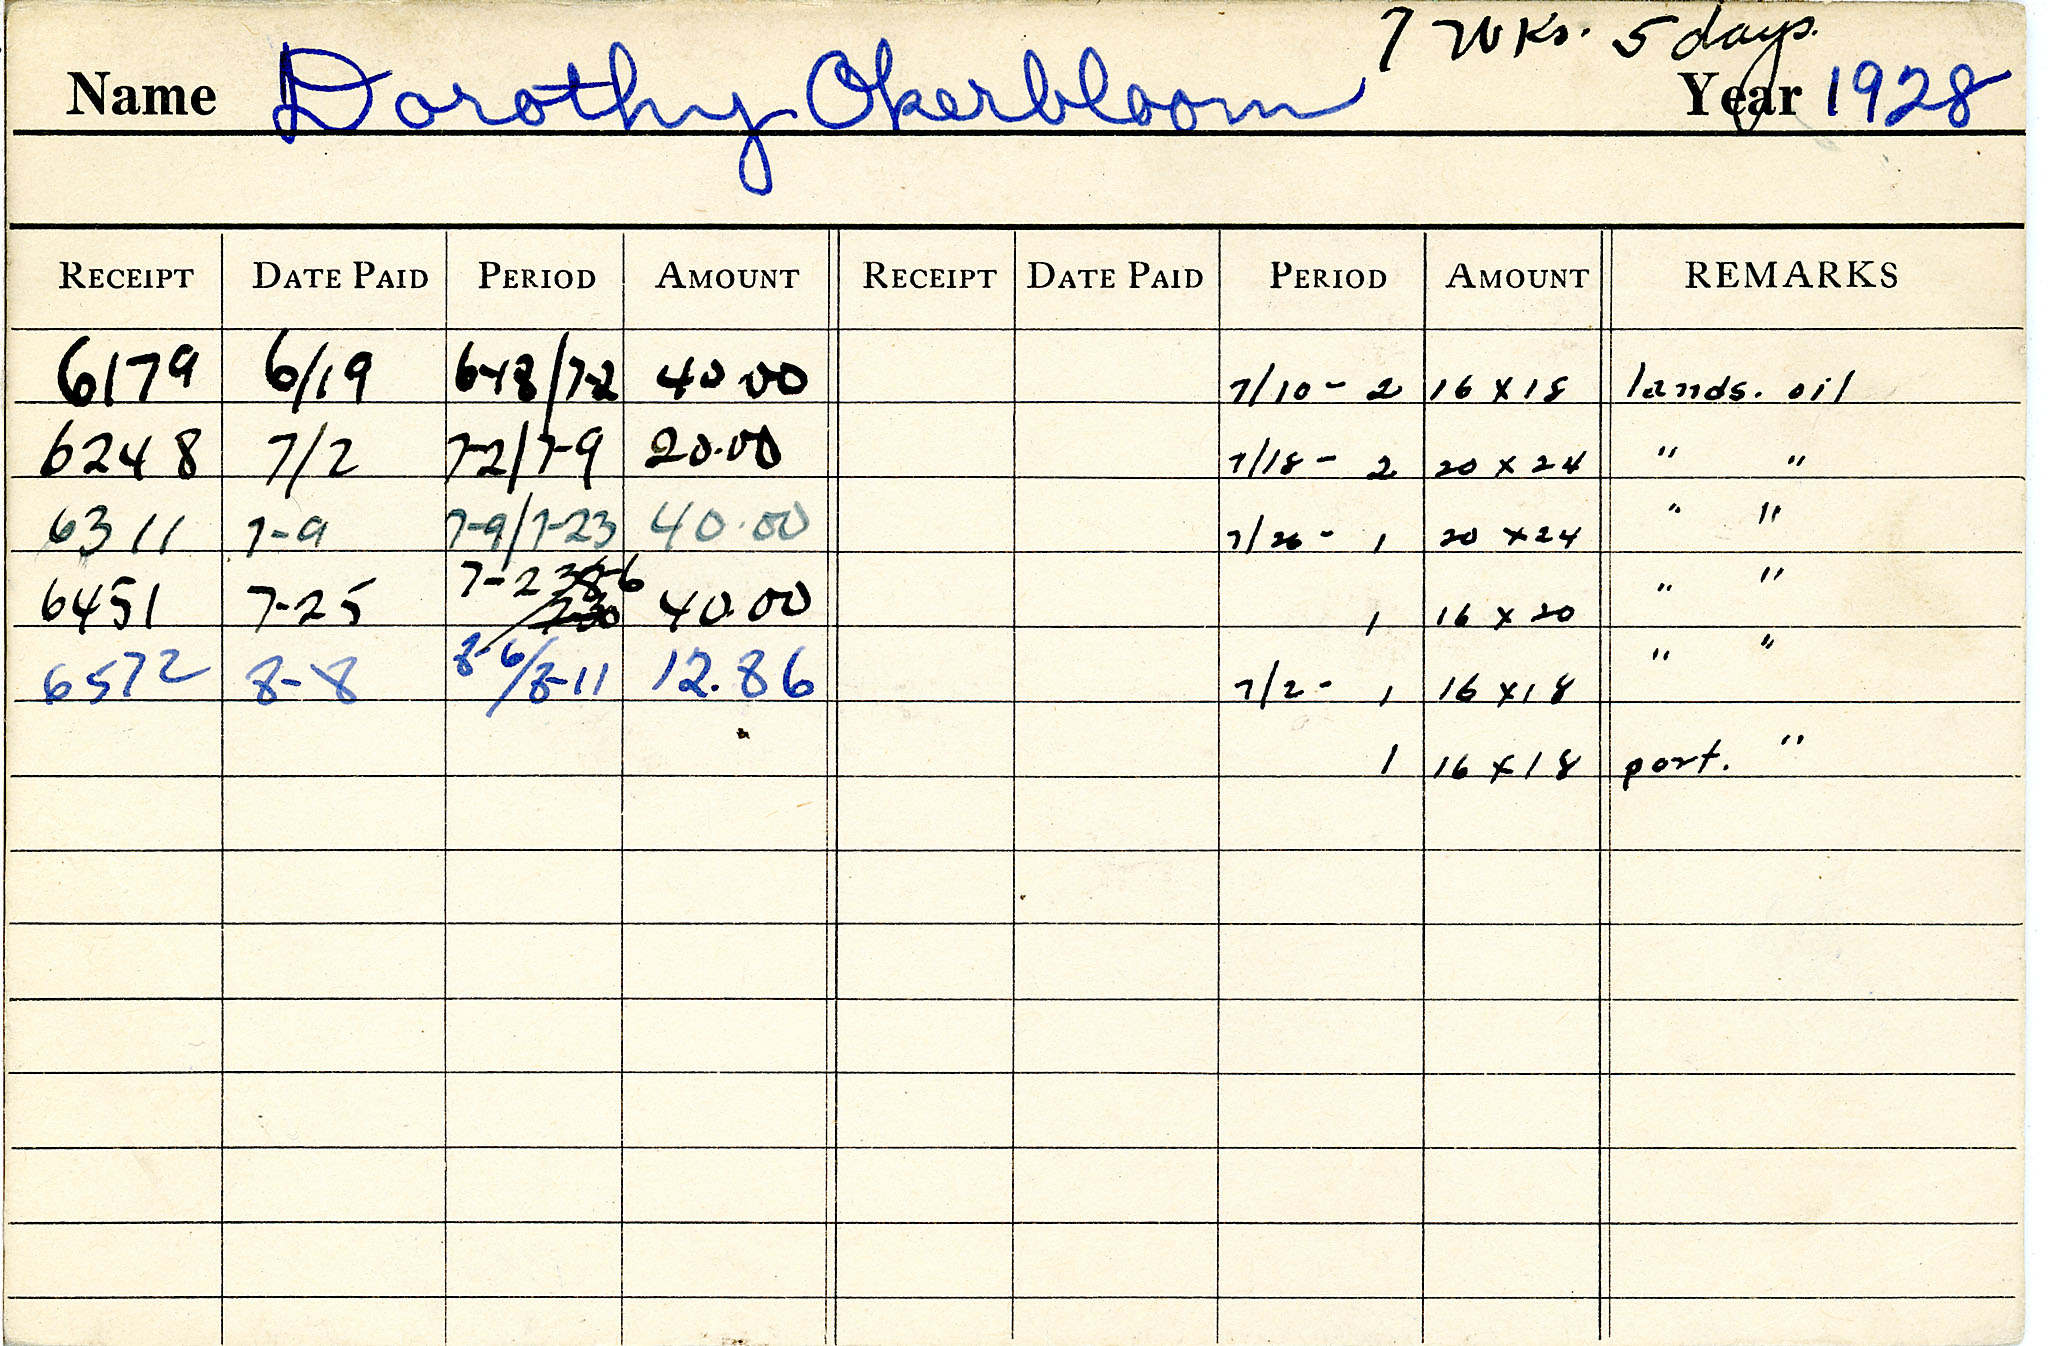 7 Wks. 5 days.
Name Dorothy Okerbloom Year 1928
RECEIPT DATE PAID PERIOD AMOUNT RECEIPT DATE PAID PERIOD AMOUNT REMARKS
6179 6/19 6-18/7-2 40.00 7/10 - 2 16 x 18 lands. oil
6248 7/2 7-2/7-9 20.00 7/18 - 2 20 x 24 " "
6311 7-9 7-9/7-23 40.00 7/26 - 1 20 x 24 " "
6451 7-25 7-23 8-6 40.00 1 16 x 20 " "
6572 8-8 8-6/8-11 12.86 7/2 - 1 16 x 18 " "
1 16 x 18 port. "